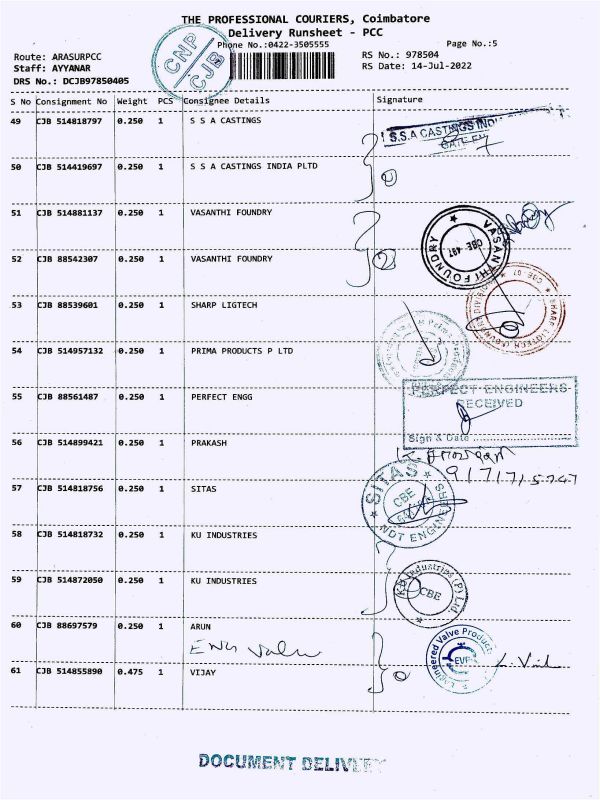 THE PROFESSIONAL COURIERS, Coimbatore
Delivery Runsheet - PCC
Phone No.:0422-3505555
Page No.:5
Route: ARASURPCC
RS No.: 978504
Staff: AYYANAR
RS Date: 14-Jul-2022
DRS No.: DCJB97850405
CNP
CJB
S No Consignment No Weight PCS Consignee Details Signature
49 CJB 514818797 0.250 1 S S A CASTINGS
S.S.A CASTINGS
50 CJB 514419697 0.250 1 S S A CASTINGS INDIA PLTD
51 CJB 514881137 0.250 1 VASANTHI FOUNDRY
VASANTHI FOUNDRY
CBE 497
52 CJB 88542307 0.250 1 VASANTHI FOUNDRY
53 CJB 88539601 0.250 1 SHARP LIGTECH
54 CJB 514957132 0.250 1 PRIMA PRODUCTS P LTD
55 CJB 88561487 0.250 1 PERFECT ENGG
PERFECT ENGINEERS
RECEIVED
Sign & Date
56 CJB 514899421 0.250 1 PRAKASH
57 CJB 514818756 0.250 1 SITAS
SITAS
CBE
NDT ENGINEERS
58 CJB 514818732 0.250 1 KU INDUSTRIES
59 CJB 514872050 0.250 1 KU INDUSTRIES
Industries (P) Ltd.
CBE
60 CJB 88697579 0.250 1 ARUN
Engineered Valve Products
EVP
61 CJB 514855890 0.475 1 VIJAY
DOCUMENT